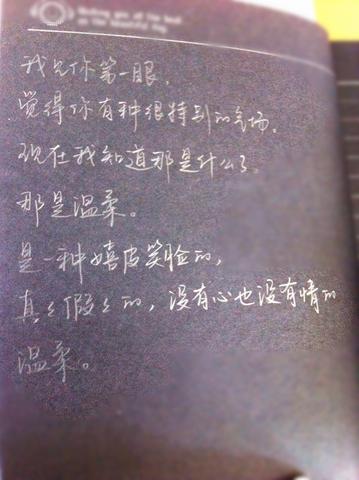 Wishing you all the best
我见你第一眼，
觉得你有种很特别的气场。
现在我知道那是什么了。
那是温柔。
是一种嬉皮笑脸的，
真真假假的，没有心也没有情的
温柔。